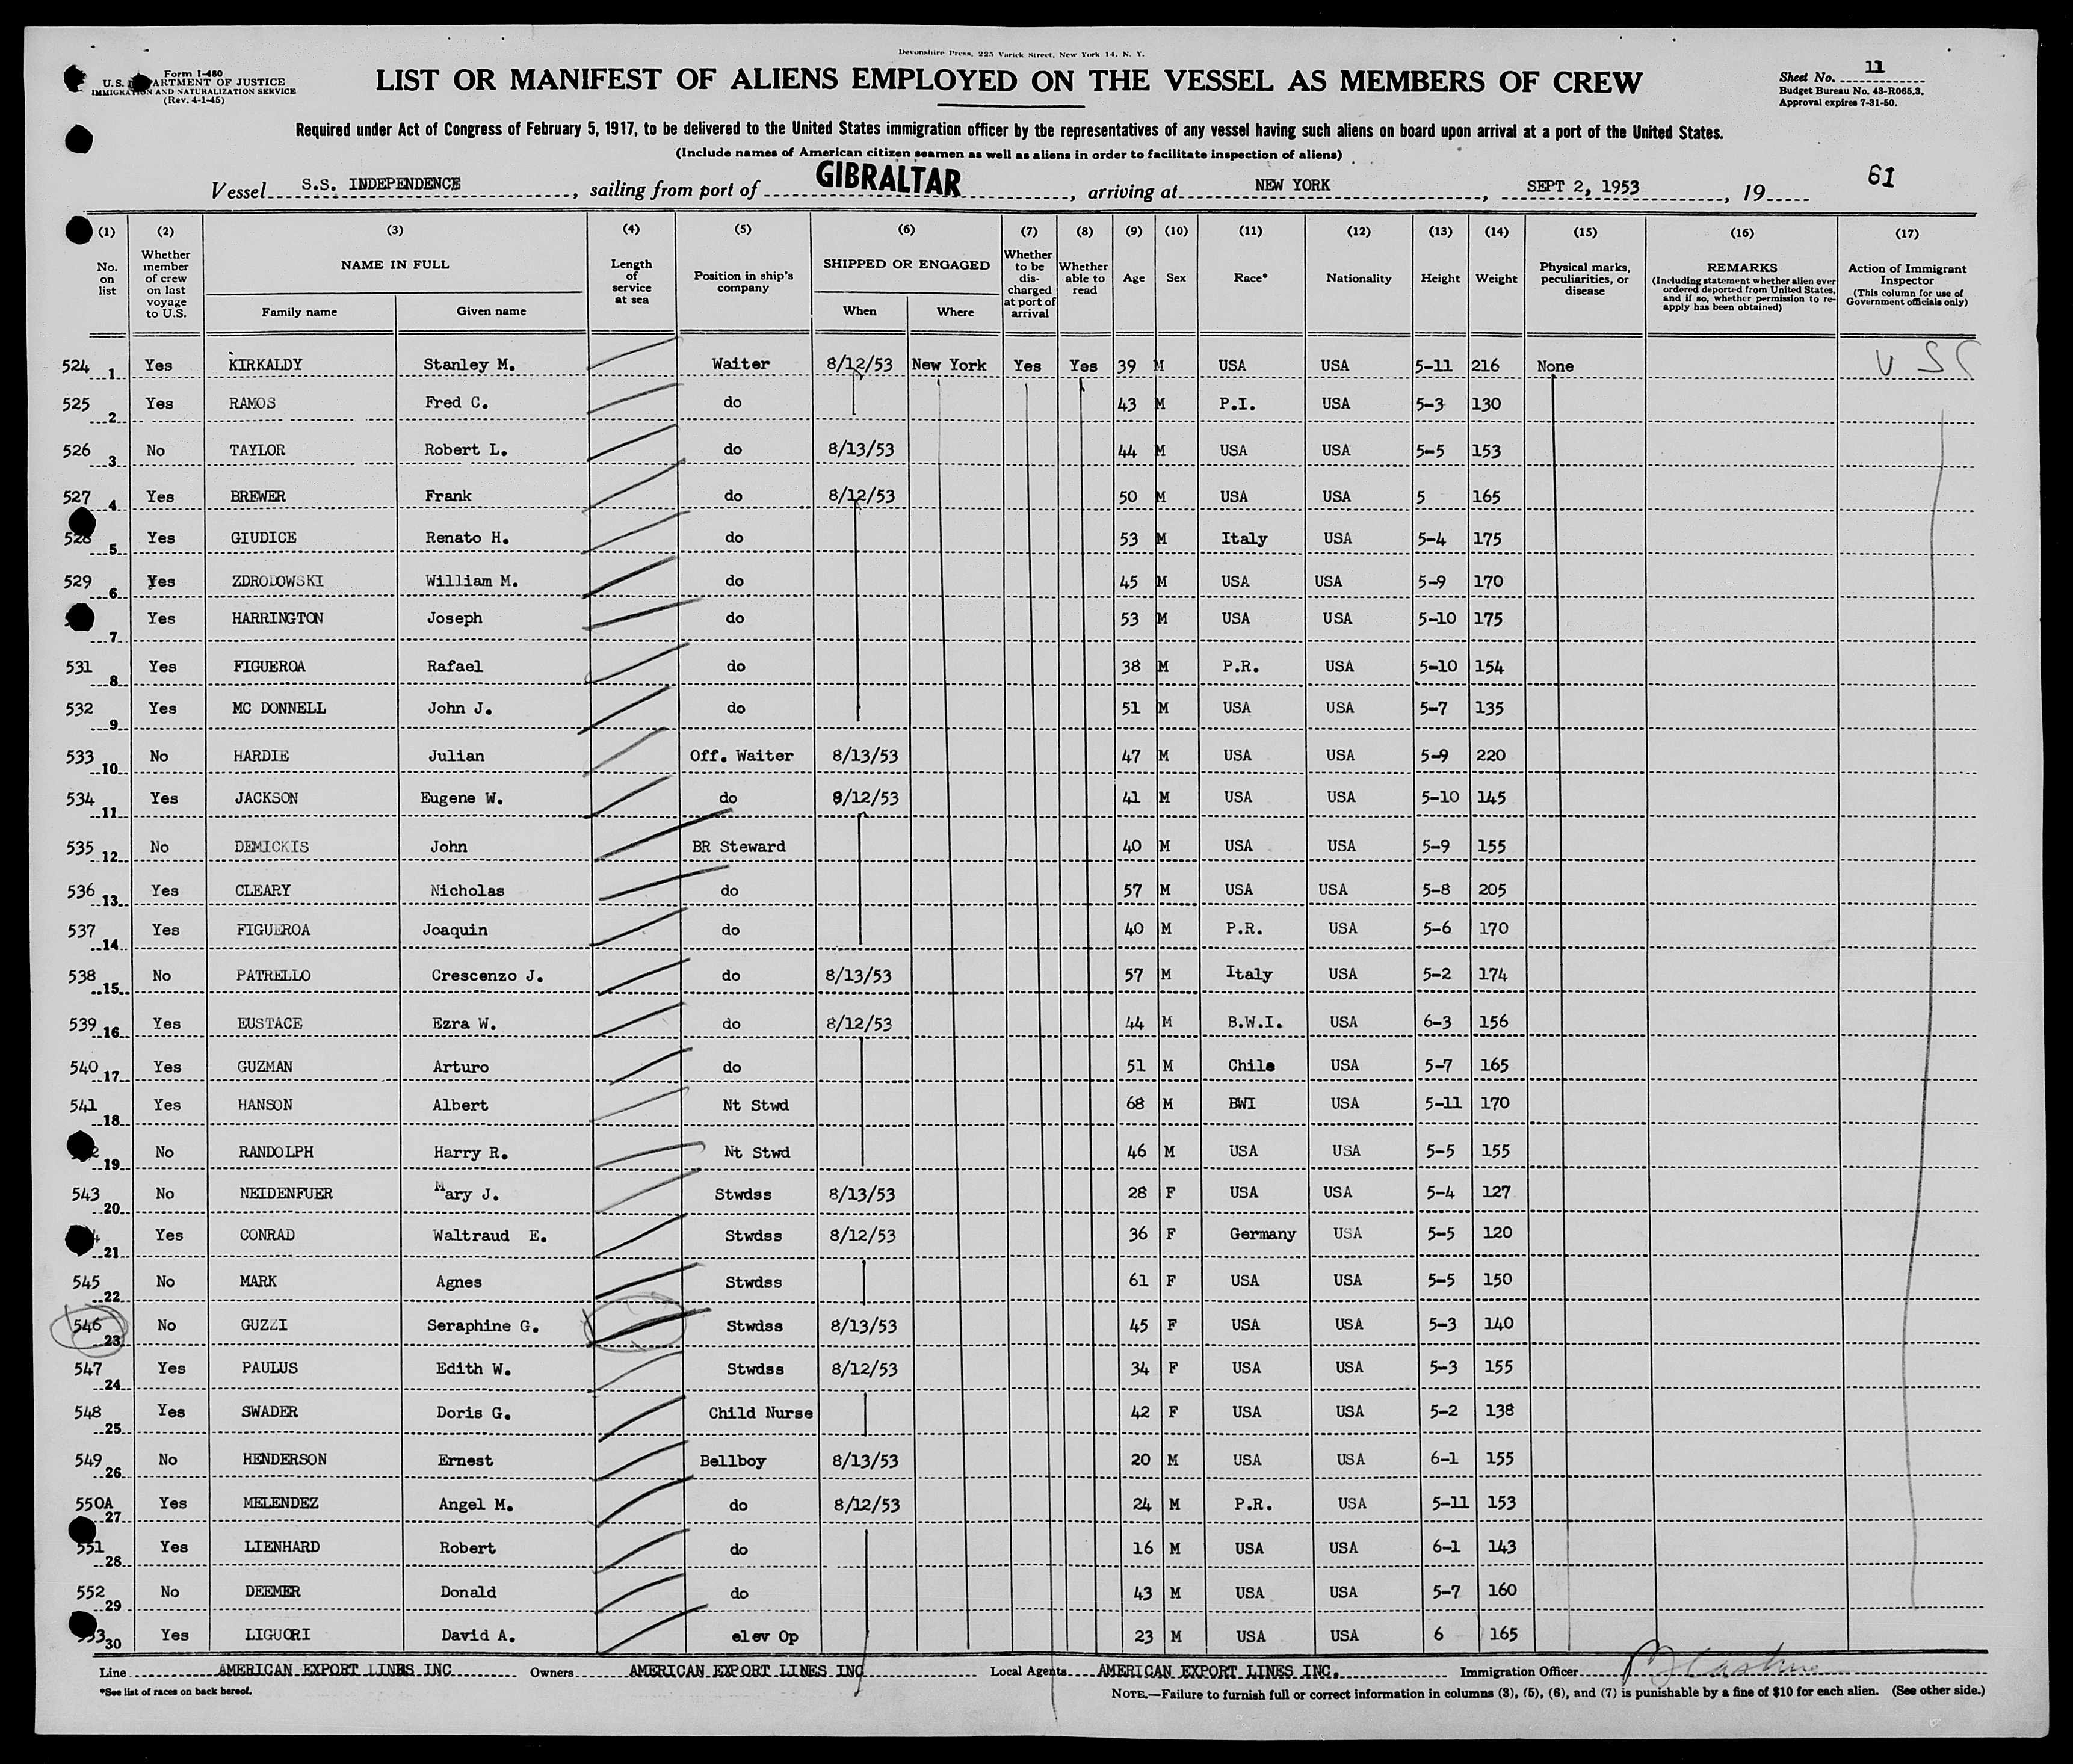 Devonshire Press, 225 Varick Street, New York 14, N. Y.
Form I-480
U.S. DEPARTMENT OF JUSTICE
IMMIGRATION AND NATURALIZATION SERVICE
(Rev. 4-1-45)
LIST OR MANIFEST OF ALIENS EMPLOYED ON THE VESSEL AS MEMBERS OF CREW
Sheet No. 11
Budget Bureau No. 43-R065.3.
Approval expires 7-31-50.
Required under Act of Congress of February 5, 1917, to be delivered to the United States immigration officer by the representatives of any vessel having such aliens on board upon arrival at a port of the United States.
(Include names of American citizen seamen as well as aliens in order to facilitate inspection of aliens)
Vessel S.S. INDEPENDENCE, sailing from port of GIBRALTAR, arriving at NEW YORK, SEPT 2, 1953, 19
61
(1) (2) (3) (4) (5) (6) (7) (8) (9) (10) (11) (12) (13) (14) (15) (16) (17)
No. on list
Whether member of crew on last voyage to U.S.
NAME IN FULL
Family name Given name
Length of service at sea
Position in ship's company
SHIPPED OR ENGAGED
When Where
Whether to be discharged at port of arrival
Whether able to read
Age Sex Race* Nationality Height Weight
Physical marks, peculiarities, or disease
REMARKS
(Including statement whether alien ever ordered deported from United States, and if so, whether permission to reapply has been obtained)
Action of Immigrant Inspector
(This column for use of Government officials only)
524 1 Yes KIRKALDY Stanley M. Waiter 8/12/53 New York Yes Yes 39 M USA USA 5-11 216 None USC
525 2 Yes RAMOS Fred C. do 43 M P.I. USA 5-3 130
526 3 No TAYLOR Robert L. do 8/13/53 44 M USA USA 5-5 153
527 4 Yes BREWER Frank do 8/12/53 50 M USA USA 5 165
528 5 Yes GIUDICE Renato H. do 53 M Italy USA 5-4 175
529 6 Yes ZDRODOWSKI William M. do 45 M USA USA 5-9 170
7 Yes HARRINGTON Joseph do 53 M USA USA 5-10 175
531 8 Yes FIGUEROA Rafael do 38 M P.R. USA 5-10 154
532 9 Yes MC DONNELL John J. do 51 M USA USA 5-7 135
533 10 No HARDIE Julian Off. Waiter 8/13/53 47 M USA USA 5-9 220
534 11 Yes JACKSON Eugene W. do 8/12/53 41 M USA USA 5-10 145
535 12 No DEMICKIS John BR Steward 40 M USA USA 5-9 155
536 13 Yes CLEARY Nicholas do 57 M USA USA 5-8 205
537 14 Yes FIGUEROA Joaquin do 40 M P.R. USA 5-6 170
538 15 No PATRELLO Crescenzo J. do 8/13/53 57 M Italy USA 5-2 174
539 16 Yes EUSTACE Ezra W. do 8/12/53 44 M B.W.I. USA 6-3 156
540 17 Yes GUZMAN Arturo do 51 M Chile USA 5-7 165
541 18 Yes HANSON Albert Nt Stwd 68 M BWI USA 5-11 170
19 No RANDOLPH Harry R. Nt Stwd 46 M USA USA 5-5 155
543 20 No NEIDENFUER Mary J. Stwdss 8/13/53 28 F USA USA 5-4 127
21 Yes CONRAD Waltraud E. Stwdss 8/12/53 36 F Germany USA 5-5 120
545 22 No MARK Agnes Stwdss 61 F USA USA 5-5 150
546 23 No GUZZI Seraphine G. Stwdss 8/13/53 45 F USA USA 5-3 140
547 24 Yes PAULUS Edith W. Stwdss 8/12/53 34 F USA USA 5-3 155
548 25 Yes SWADER Doris G. Child Nurse 42 F USA USA 5-2 138
549 26 No HENDERSON Ernest Bellboy 8/13/53 20 M USA USA 6-1 155
550A 27 Yes MELENDEZ Angel M. do 8/12/53 24 M P.R. USA 5-11 153
551 28 Yes LIENHARD Robert do 16 M USA USA 6-1 143
552 29 No DEEMER Donald do 43 M USA USA 5-7 160
553 30 Yes LIGUORI David A. elev Op 23 M USA USA 6 165
Line AMERICAN EXPORT LINES INC Owners AMERICAN EXPORT LINES INC Local Agents AMERICAN EXPORT LINES INC. Immigration Officer
*See list of races on back hereof.
NOTE.—Failure to furnish full or correct information in columns (3), (5), (6), and (7) is punishable by a fine of $10 for each alien. (See other side.)